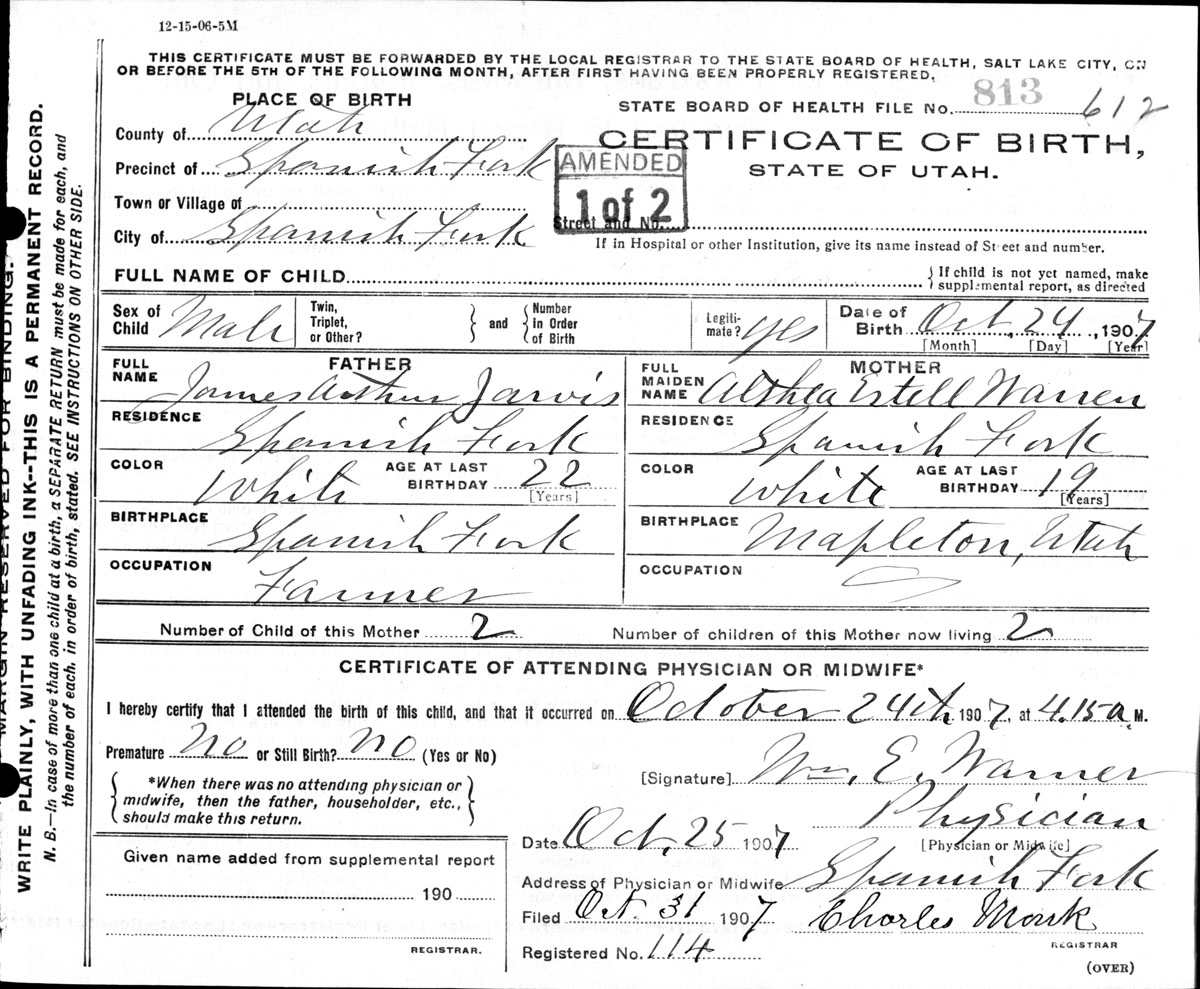 12-15-06-5M
THIS CERTIFICATE MUST BE FORWARDED BY THE LOCAL REGISTRAR TO THE STATE BOARD OF HEALTH, SALT LAKE CITY, ON
OR BEFORE THE 5TH OF THE FOLLOWING MONTH, AFTER FIRST HAVING BEEN PROPERLY REGISTERED.
PLACE OF BIRTH
STATE BOARD OF HEALTH FILE No. 813 612
County of Utah
CERTIFICATE OF BIRTH,
STATE OF UTAH.
Precinct of Spanish Fork
AMENDED
1 of 2
Town or Village of
Street and No.
City of Spanish Fork
If in Hospital or other Institution, give its name instead of Street and number.
FULL NAME OF CHILD
If child is not yet named, make
supplemental report, as directed
Sex of Child Male
Twin, Triplet, or Other?
and
Number in Order of Birth
Legiti-mate? yes
Date of Birth Oct, 24, 1907
[Month] [Day] [Year]
FATHER
FULL NAME James Arthur Jarvis
MOTHER
FULL MAIDEN NAME Althea Estell Warren
RESIDENCE Spanish Fork
RESIDENCE Spanish Fork
COLOR White AGE AT LAST BIRTHDAY 22 [Years]
COLOR White AGE AT LAST BIRTHDAY 19 [Years]
BIRTHPLACE Spanish Fork
BIRTHPLACE Mapleton, Utah
OCCUPATION Farmer
OCCUPATION
Number of Child of this Mother 2
Number of children of this Mother now living 2
CERTIFICATE OF ATTENDING PHYSICIAN OR MIDWIFE*
I hereby certify that I attended the birth of this child, and that it occurred on October 24th 1907, at 4.15 a M.
Premature No or Still Birth? No (Yes or No)
[Signature] Wm. E. Warner
*When there was no attending physician or
midwife, then the father, householder, etc.,
should make this return.
Physician
[Physician or Midwife]
Date Oct, 25 1907
Given name added from supplemental report
190
REGISTRAR.
Address of Physician or Midwife Spanish Fork
Filed Oct. 31 1907 Charles Monk
REGISTRAR
Registered No. 114
(OVER)
MARGIN RESERVED FOR BINDING.
WRITE PLAINLY, WITH UNFADING INK--THIS IS A PERMANENT RECORD.
N. B.—In case of more than one child at a birth, a SEPARATE RETURN must be made for each, and
the number of each, in order of birth, stated. SEE INSTRUCTIONS ON OTHER SIDE.